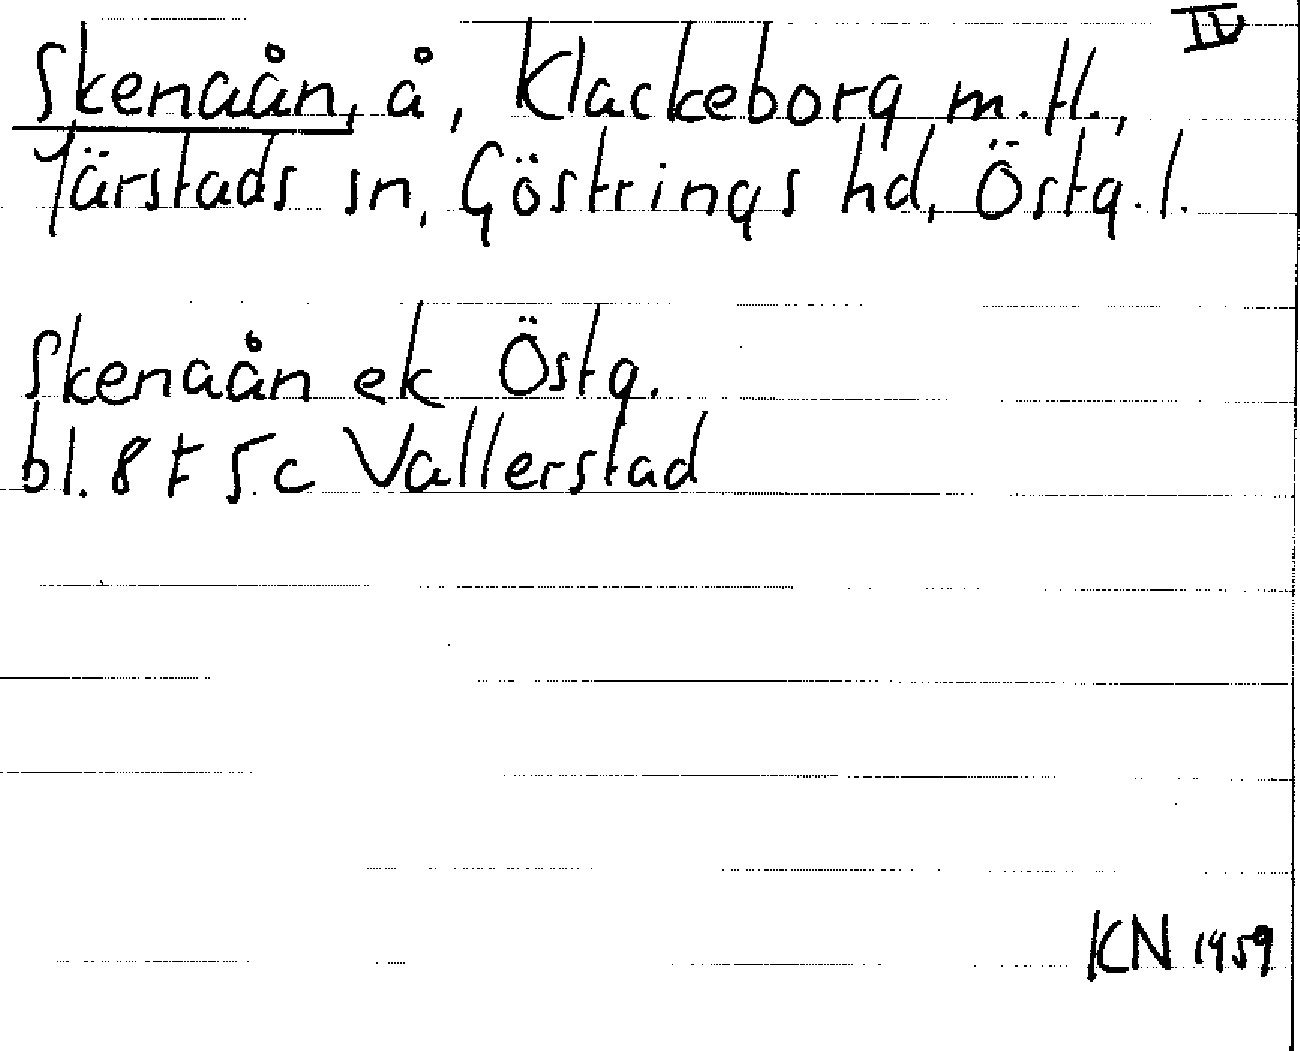 IV
Skenaån, å, Klackeborg m.fl.,
Järstads sn, Göstrings hd, Östg.l.
Skenaån ek Östg.
bl. 8 F 5 c Vallerstad
KN 1959